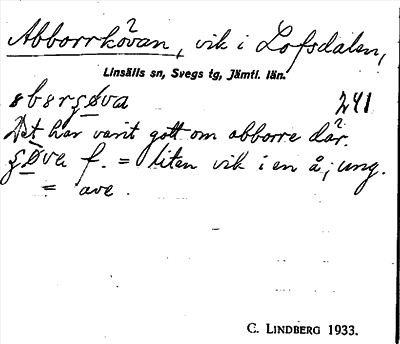 Abborrkövan, vik i Lofsdalen,
Linsälls sn, Svegs tg, Jämtl. län.
abərʂøva 241
Det har varit gott om abborre där.
ʂøva f. = liten vik i en å; ung.
= ave.
C. LINDBERG 1933.